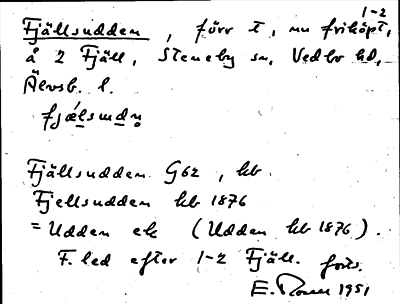 1-2
Fjällsudden, förr t, nu friköpt,
å 2 Fjäll, Steneby sn, Vedbo hd,
Älvsb. l.
fjálsudn̥
Fjällsudden G62, hb.
Fjellsudden hb 1876
= Udden ek (Udden hb 1876).
F. led efter 1-2 Fjäll. forts.
E. 1951